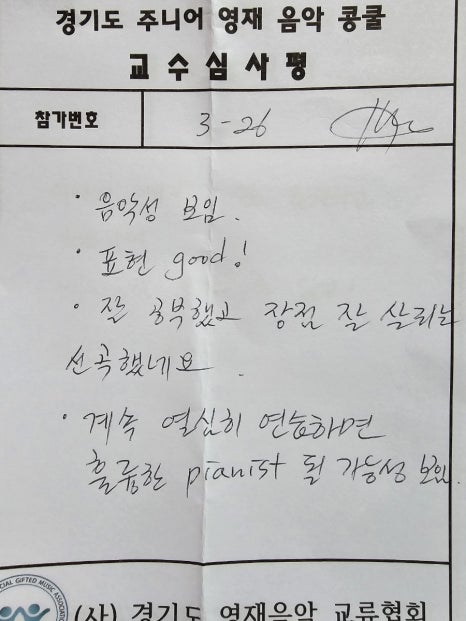 경기도 주니어 영재 음악 콩쿨
교수심사평
참가번호 3-26
· 음악성 보임.
· 표현 good!
· 잘 공부했고 장점 잘 살리는
선곡했네요.
· 계속 열심히 연습하면
훌륭한 pianist 될 가능성 보임.
CIAL GIFTED MUSIC ASSOCIA
(사) 경기도 영재음악 교류협회